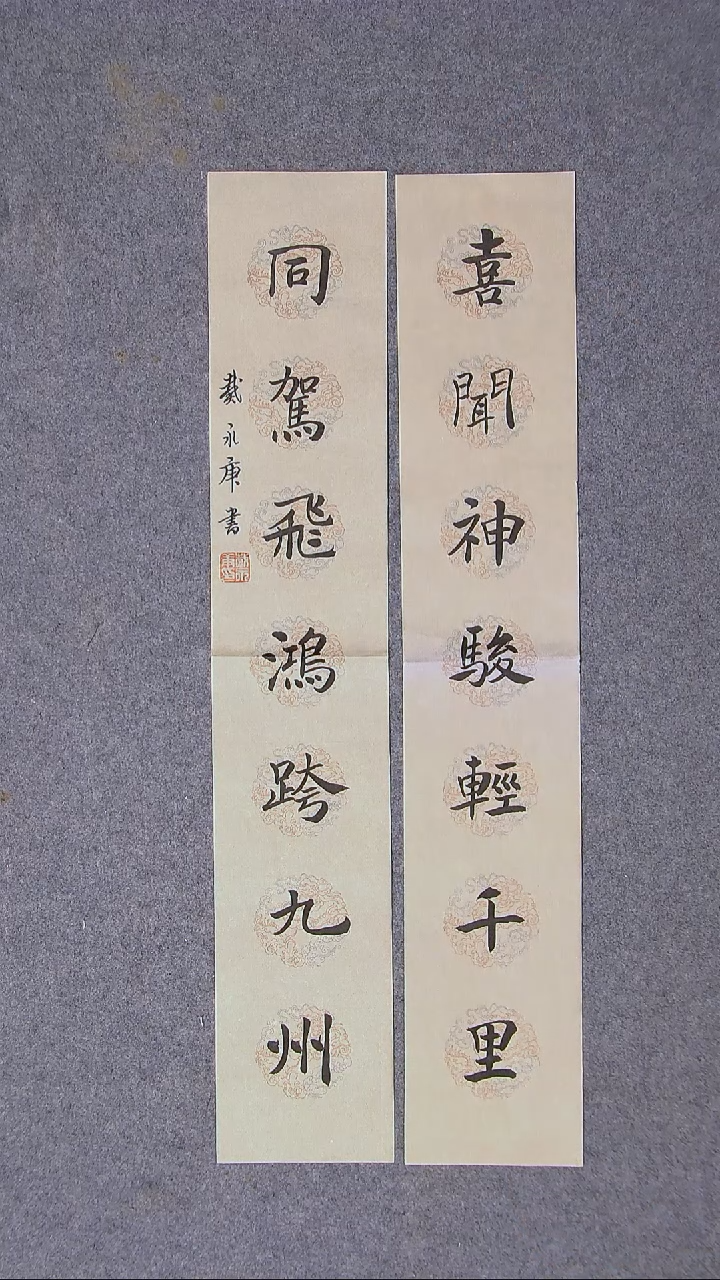 喜聞神駿輕千里
同駕飛鴻跨九州
戴永庚書